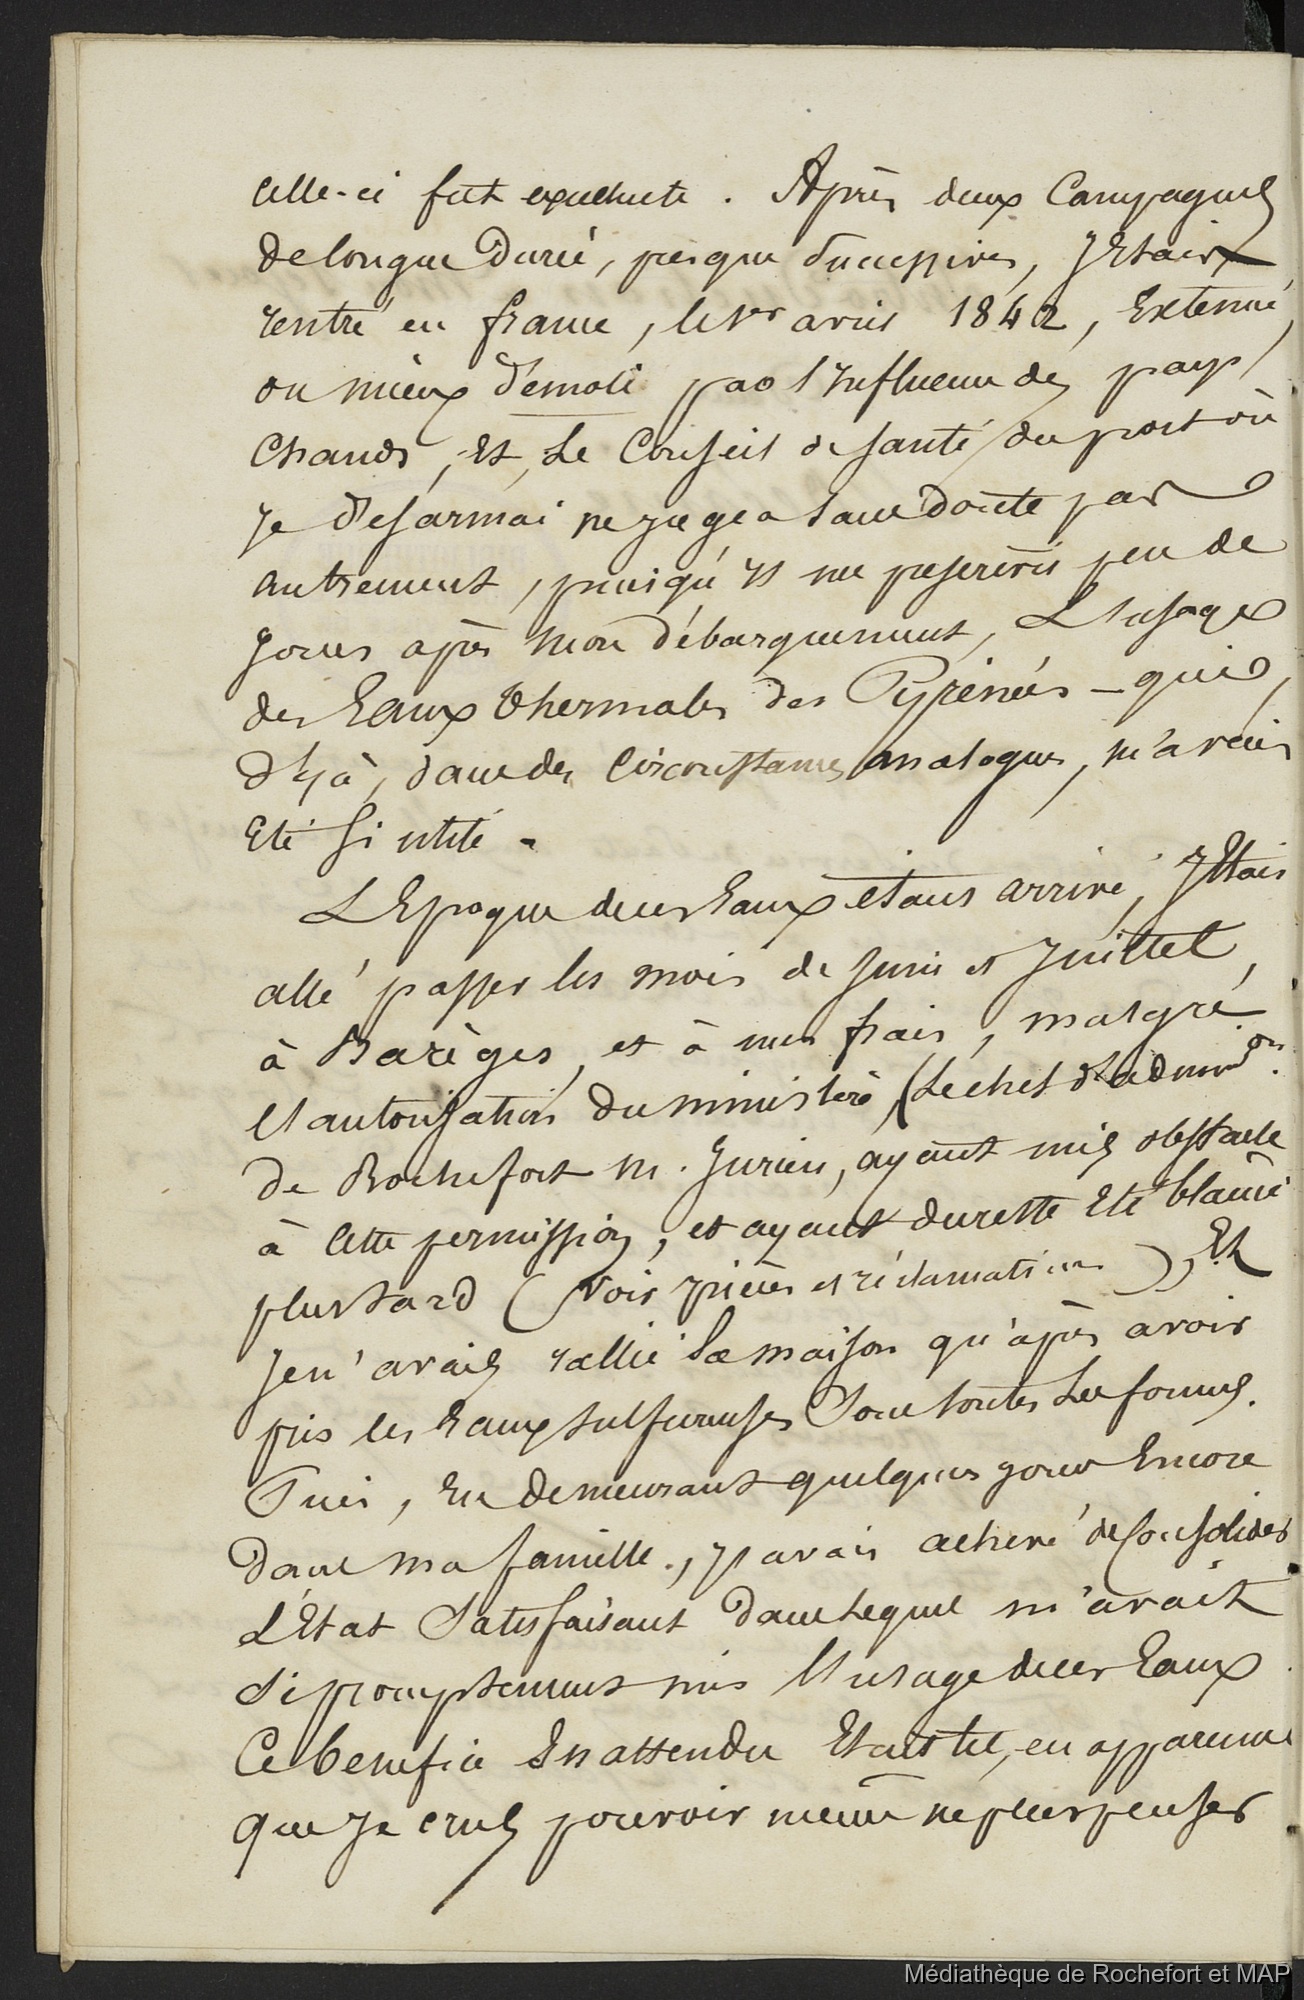 Celle-ci fut exubente. Après deux Campagnes
de longue Durée, presque Successives, J'Etais
rentré en france, le 1er avril 1842, Extenué,
ou mieux Démoli par l'Influence des pays
Chauds, Et, Le Conseil de santé du port où
je Désarmai ne jugea sans doute pas
autrement, puisqu'Il me prescrivit peu de
Jours après mon Débarquement, L'usage
des Eaux thermales des Pyrénées – qui,
déjà, dans des Circonstances analogues, m'avait
Eté si utile.
L'Epoque de ces Eaux étant arrivé, J'Etais
allé passer les mois de Juin et Juillet,
à Barèges, et à mes frais, malgré
l'autorisation du ministère, (Le chef d'admon.
de Rochefort M. Jurien, ayant mis obstacle
à cette permission, et ayant du reste Eté blamé
plus tard (Voir pièces et réclamations), Et
Je n'avais rallié la maison qu'après avoir
pris les Eaux sulfureuses Sous toutes Les formes.
Puis, En Demeurant quelques jours Encore
Dans ma famille, j'avais achevé de Consolider
L'Etat Satisfaisant Dans lequel m'avait
Si promptement mis l'usage de ces Eaux.
Ce benefice Inattendu Etait tel, en apparence
que Je crus pouvoir même ne plus penser